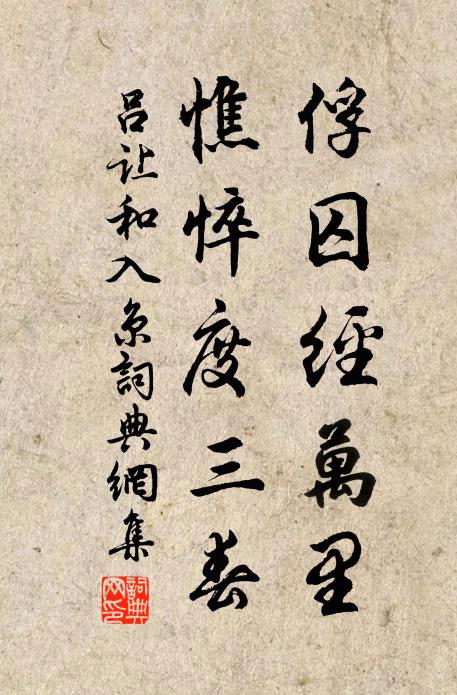 俘囚經萬里
憔悴度三春
吕让和入京詞典網集
詞典網印